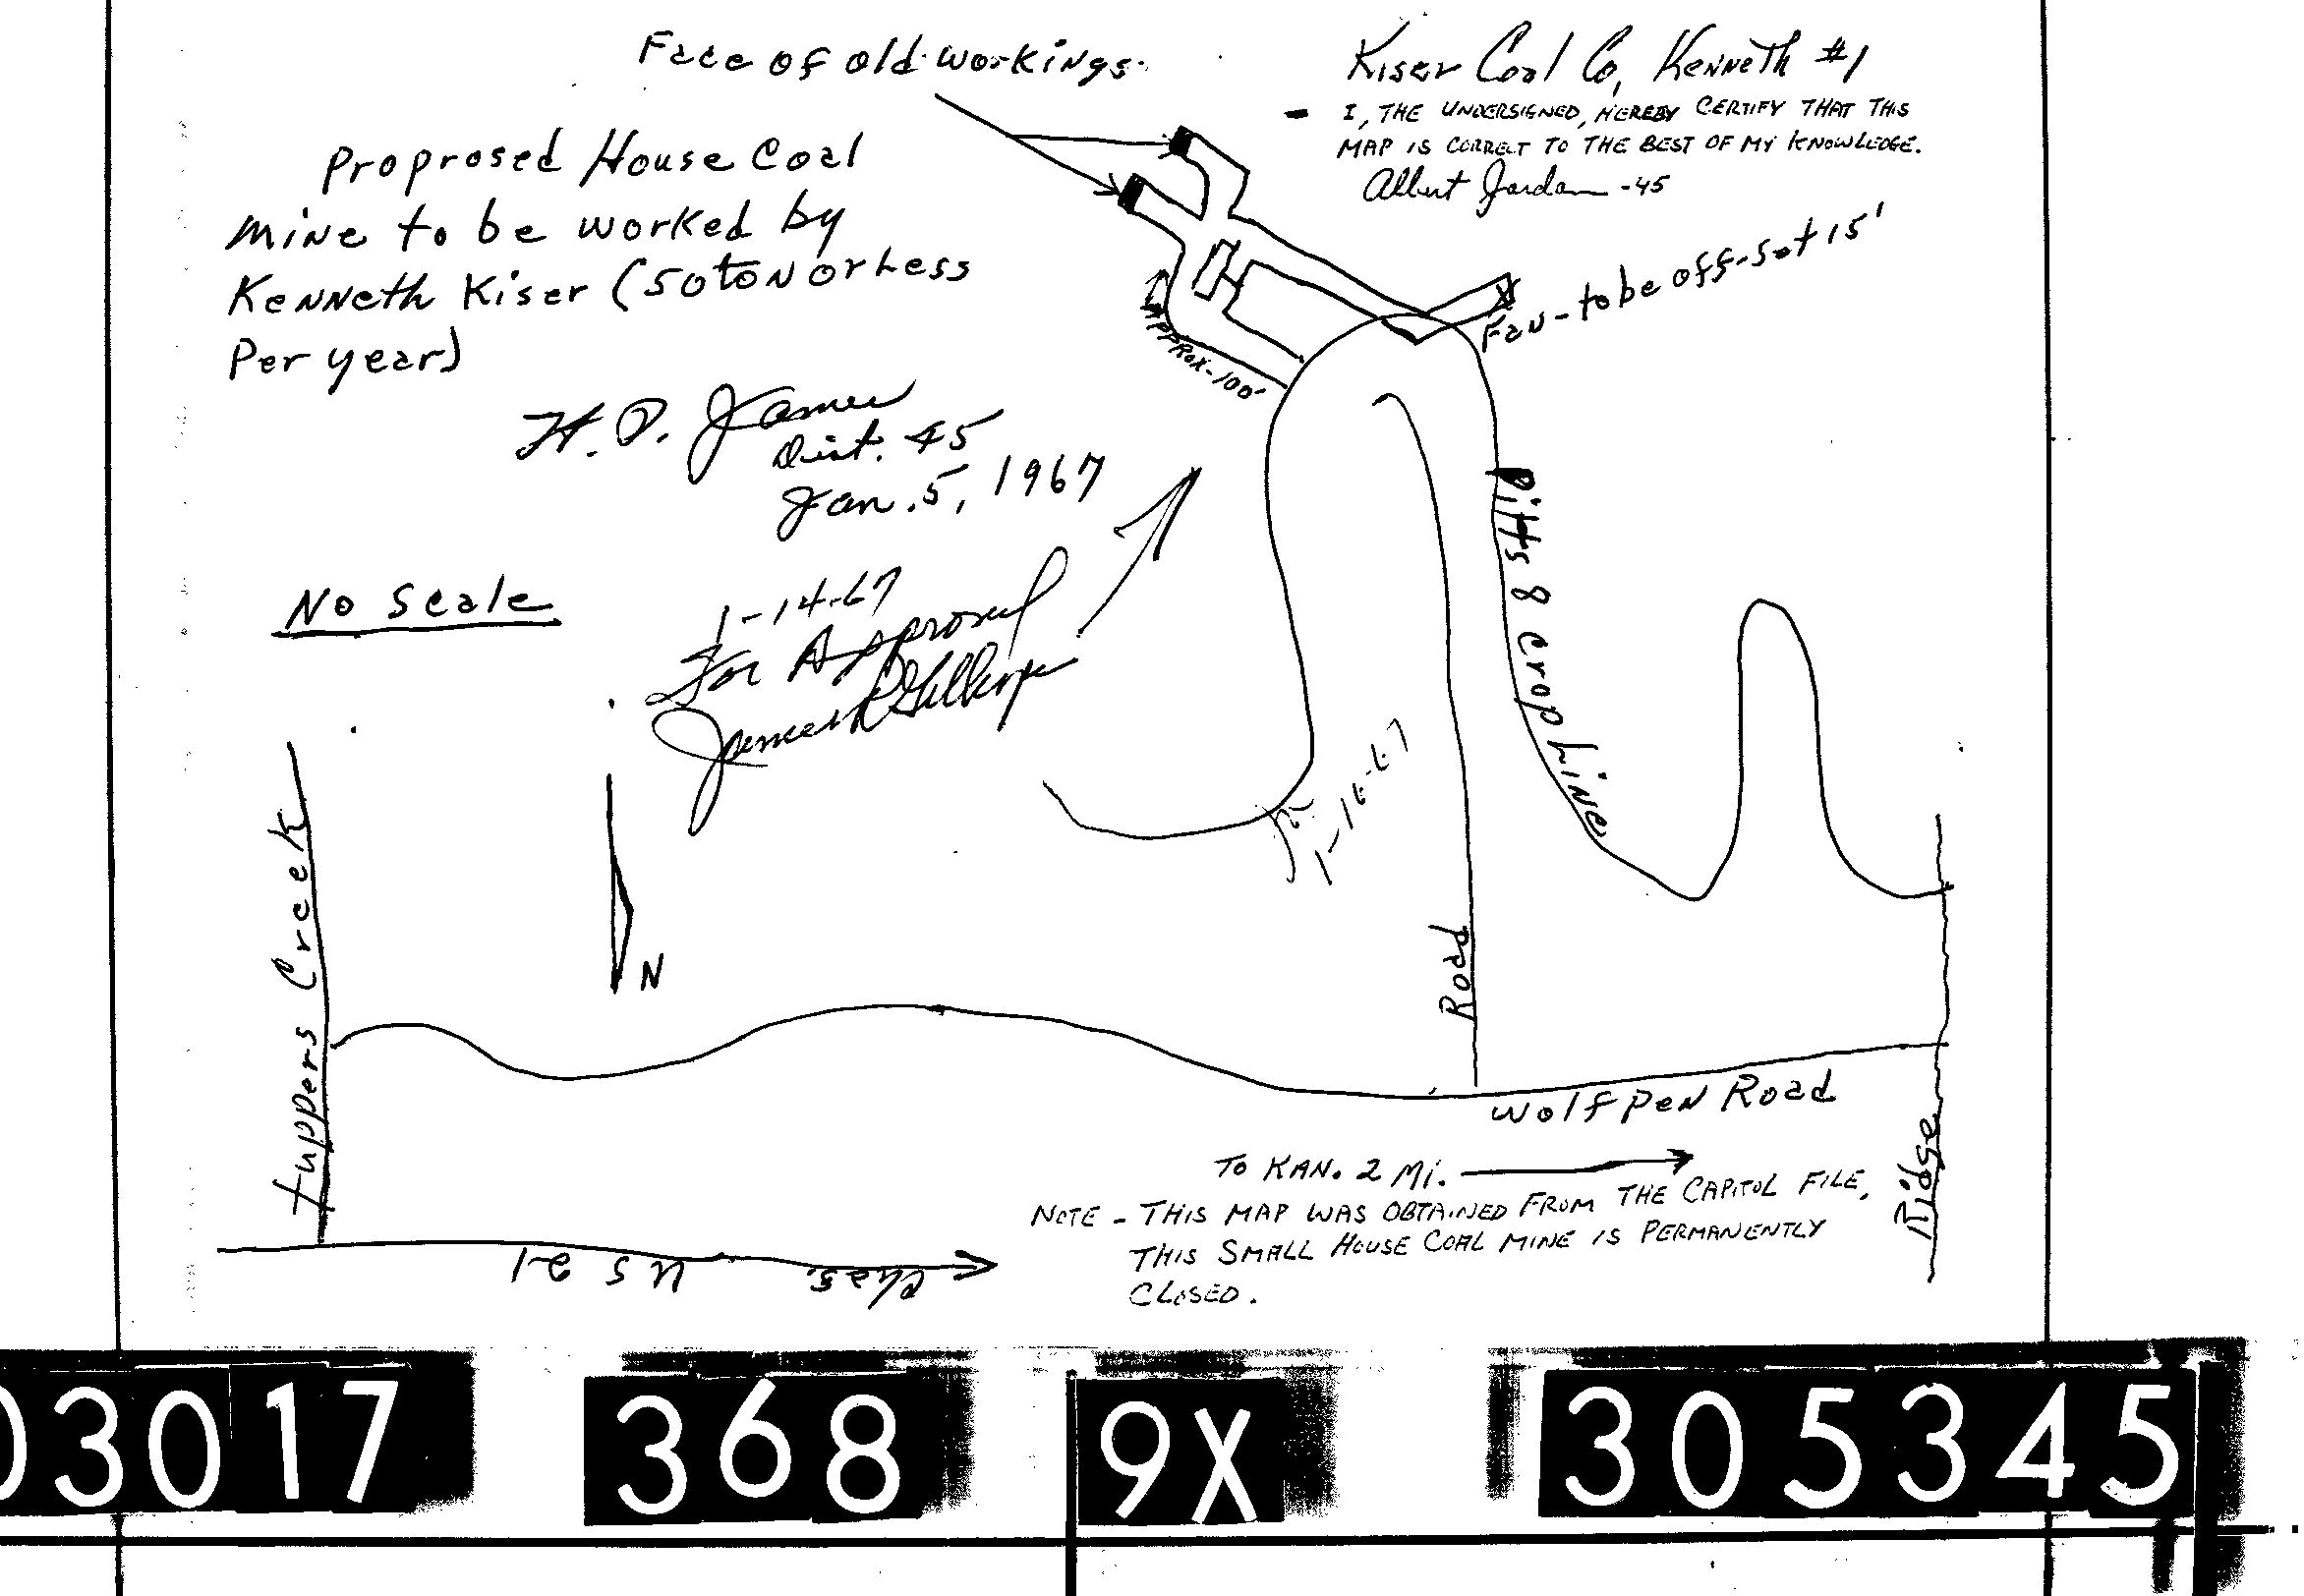 Face of old workings.
Kiser Coal Co, Kenneth #1
I, THE UNDERSIGNED, HEREBY CERTIFY THAT THIS
MAP IS CORRECT TO THE BEST OF MY KNOWLEDGE.
Albert Jordan -45
Proprosed House Coal
mine to be worked by
Kenneth Kiser (50 ton or Less
Per year)
Fan - to be off-set 15'
APPROX-100'
H. P. James
Dist. 45
Jan. 5, 1967
Pitts 8 crop Line
No Scale
1-14-67
For Approval
James
1-16-67
Tuppers Creek
N
Road
Wolf Pen Road
Ridge
TO KAN. 2 Mi.
NOTE - THIS MAP WAS OBTAINED FROM THE CAPITOL FILE,
THIS SMALL HOUSE COAL MINE IS PERMANENTLY
CLOSED.
U S 21
chas.
03017 368 9X 305345